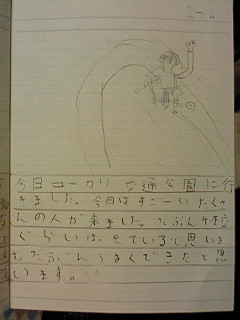 今日ユーカリ交通公園に行
きました。今日はすごーくたくさ
んの人が来ました。たぶん
ぐらいはきていると思いま
す。たぶんうまくできたと思
います。